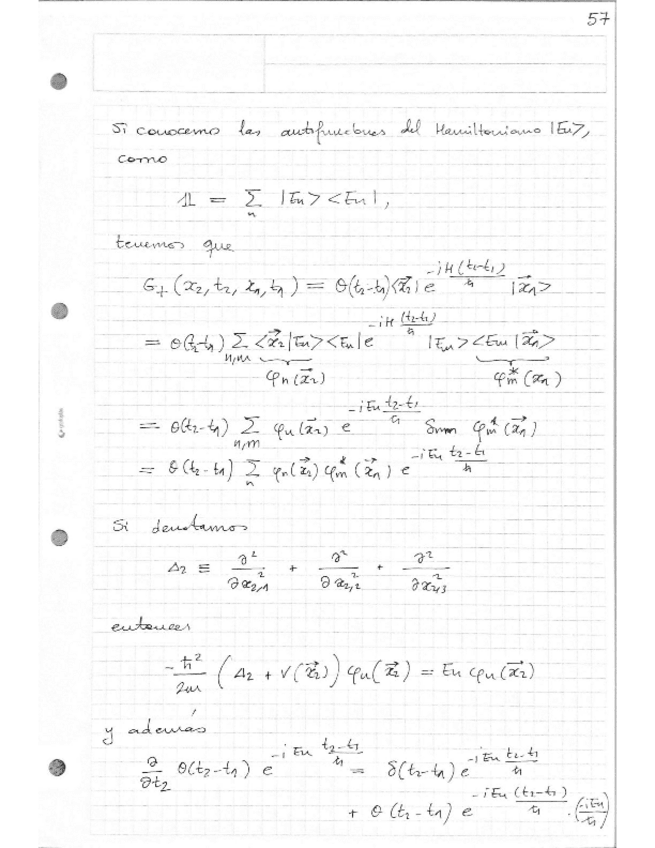 57
Si conocemos las autofunciones del Hamiltoniano |En>,
como
1L = Σ_n |En> <En|,
tenemos que
G₊(x₂, t₂, x₁, t₁) = θ(t₂-t₁) <x⃗₂| e^{-iH(t₂-t₁)/ħ} |x⃗₁>
= θ(t₂-t₁) Σ_{n,m} <x⃗₂|En> <En| e^{-iH(t₂-t₁)/ħ} |Em> <Em|x⃗₁>
φn(x⃗₂) φm*(x₁)
= θ(t₂-t₁) Σ_{n,m} φn(x⃗₂) e^{-iEn(t₂-t₁)/ħ} δnm φm*(x⃗₁)
= θ(t₂-t₁) Σ_n φn(x⃗₂) φm*(x⃗₁) e^{-iEn(t₂-t₁)/ħ}
Si denotamos
Δ₂ ≡ ∂²/∂x²₂,₁ + ∂²/∂x²₂,₂ + ∂²/∂x²₂,₃
entonces
-ħ²/2m (Δ₂ + V(x⃗₂)) φn(x⃗₂) = En φn(x⃗₂)
y además
∂/∂t₂ θ(t₂-t₁) e^{-iEn(t₂-t₁)/ħ} = δ(t₂-t₁) e^{-iEn(t₂-t₁)/ħ}
+ θ(t₂-t₁) e^{-iEn(t₂-t₁)/ħ} · (-iEn/ħ)